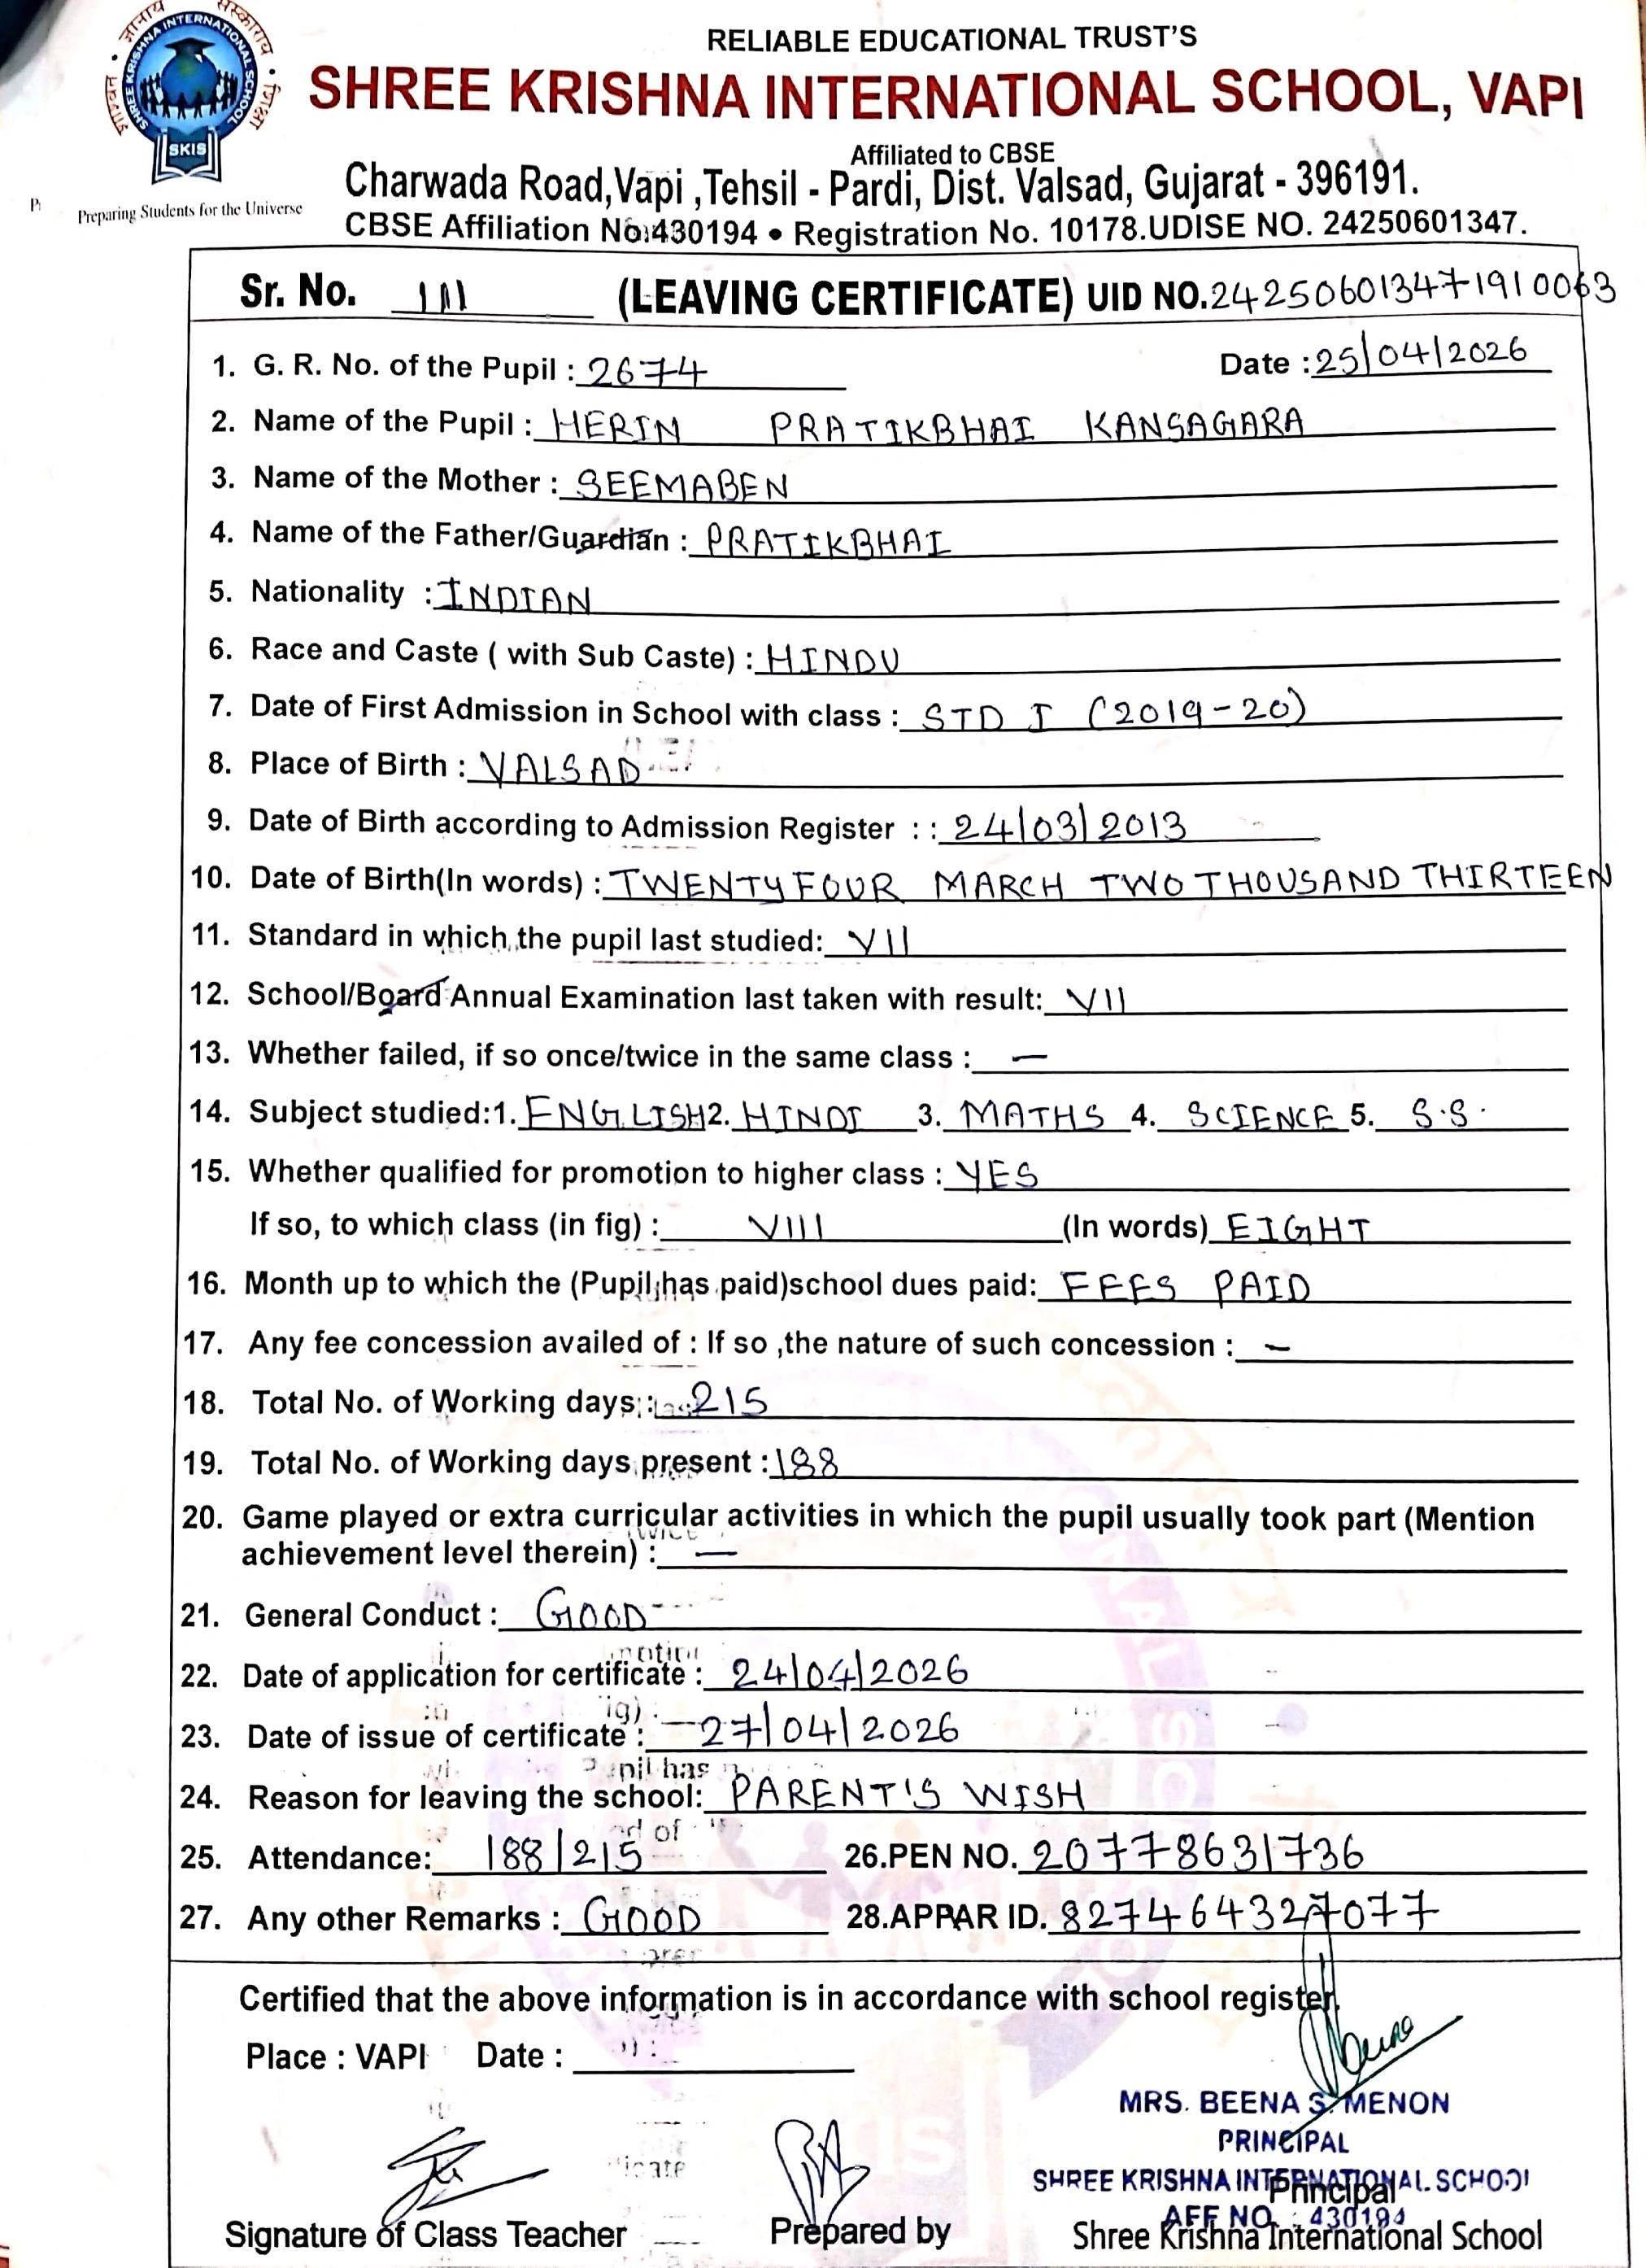 RELIABLE EDUCATIONAL TRUST'S
SHREE KRISHNA INTERNATIONAL SCHOOL, VAPI
SHREE KRISHNA INTERNATIONAL SCHOOL
SKIS
Affiliated to CBSE
Charwada Road,Vapi ,Tehsil - Pardi, Dist. Valsad, Gujarat - 396191.
Preparing Students for the Universe
CBSE Affiliation No:430194 • Registration No. 10178.UDISE NO. 24250601347.
Sr. No. 111 (LEAVING CERTIFICATE) UID NO.242506013471910063
1. G. R. No. of the Pupil : 2674 Date :25/04/2026
2. Name of the Pupil : HERIN PRATIKBHAI KANSAGARA
3. Name of the Mother : SEEMABEN
4. Name of the Father/Guardian : PRATIKBHAI
5. Nationality : INDIAN
6. Race and Caste ( with Sub Caste) : HINDU
7. Date of First Admission in School with class : STD I (2019-20)
8. Place of Birth : VALSAD
9. Date of Birth according to Admission Register : : 24/03/2013
10. Date of Birth(In words) : TWENTY FOUR MARCH TWO THOUSAND THIRTEEN
11. Standard in which the pupil last studied: VII
12. School/Board Annual Examination last taken with result: VII
13. Whether failed, if so once/twice in the same class : —
14. Subject studied:1. ENGLISH 2. HINDI 3. MATHS 4. SCIENCE 5. S.S.
15. Whether qualified for promotion to higher class : YES
If so, to which class (in fig) : VIII (In words) EIGHT
16. Month up to which the (Pupil has paid)school dues paid: FEES PAID
17. Any fee concession availed of : If so ,the nature of such concession : —
18. Total No. of Working days : 215
19. Total No. of Working days present : 188
20. Game played or extra curricular activities in which the pupil usually took part (Mention
achievement level therein) : —
21. General Conduct : GOOD
22. Date of application for certificate : 24/04/2026
23. Date of issue of certificate : 27/04/2026
24. Reason for leaving the school: PARENT'S WISH
25. Attendance: 188/215 26.PEN NO. 20778631736
27. Any other Remarks : GOOD 28.APPAR ID. 827464327077
Certified that the above information is in accordance with school register.
Place : VAPI Date :
MRS. BEENA S. MENON
PRINCIPAL
SHREE KRISHNA INTERNATIONAL SCHOOL
Principal
AFF NO. : 430194
Signature of Class Teacher Prepared by Shree Krishna International School